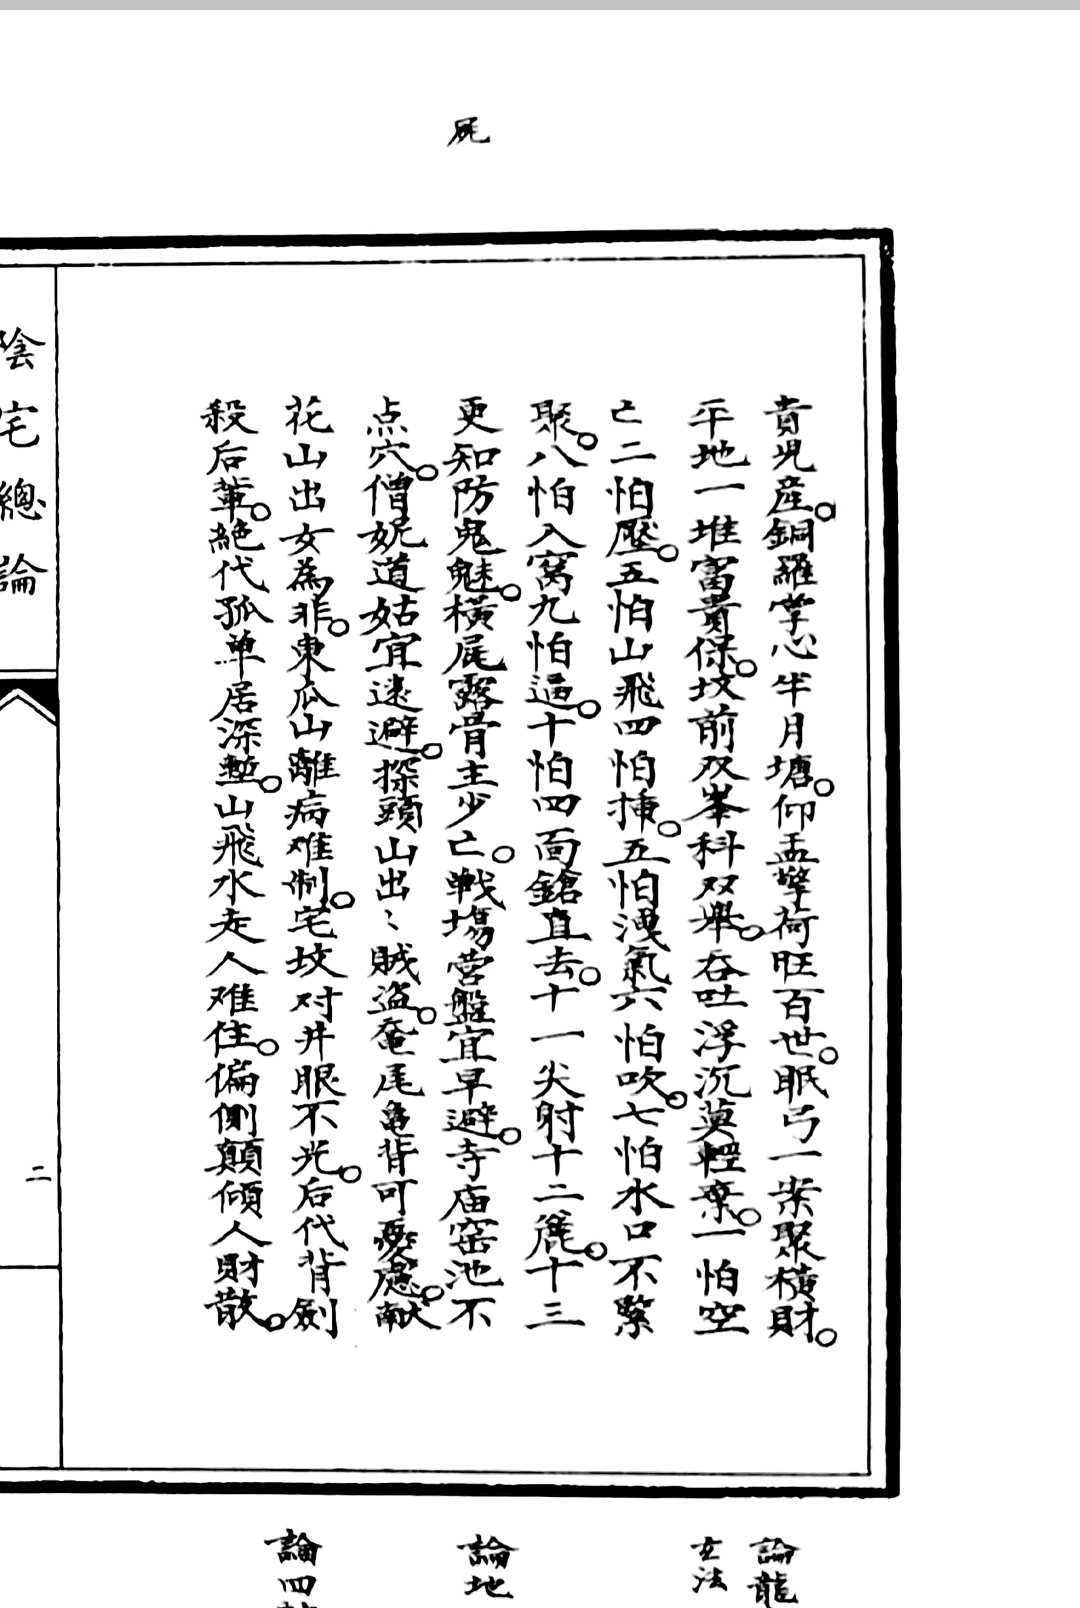 屍
貴児産。銅羅掌心半月塘。仰盂擎荷旺百世。眠弓一案聚橫財。
平地一堆富貴保。坟前双峯科双舉。吞吐浮沉莫輕棄。一怕空
亡二怕壓。五怕山飛四怕𢫬。五怕洩氣六怕吹。七怕水口不緊
聚。八怕入窝九怕逼。十怕四面鎗直去。十一尖射十二。十三
更知防鬼魅。橫屍露骨主少亡。戦場营盤宜早避。寺庙窑池不
点穴。僧妮道姑宜逺避。探頭山出〻賊盗。奄尾亀背可憂慮。献
花山出女為非。東瓜山離病难制。宅坟对井眼不光。后代背劍
殺后輩。絕代孤单居深塹。山飛水走人难住。偏側顛傾人財散。
陰宅總論
二
論龍
玄法
論地
論四